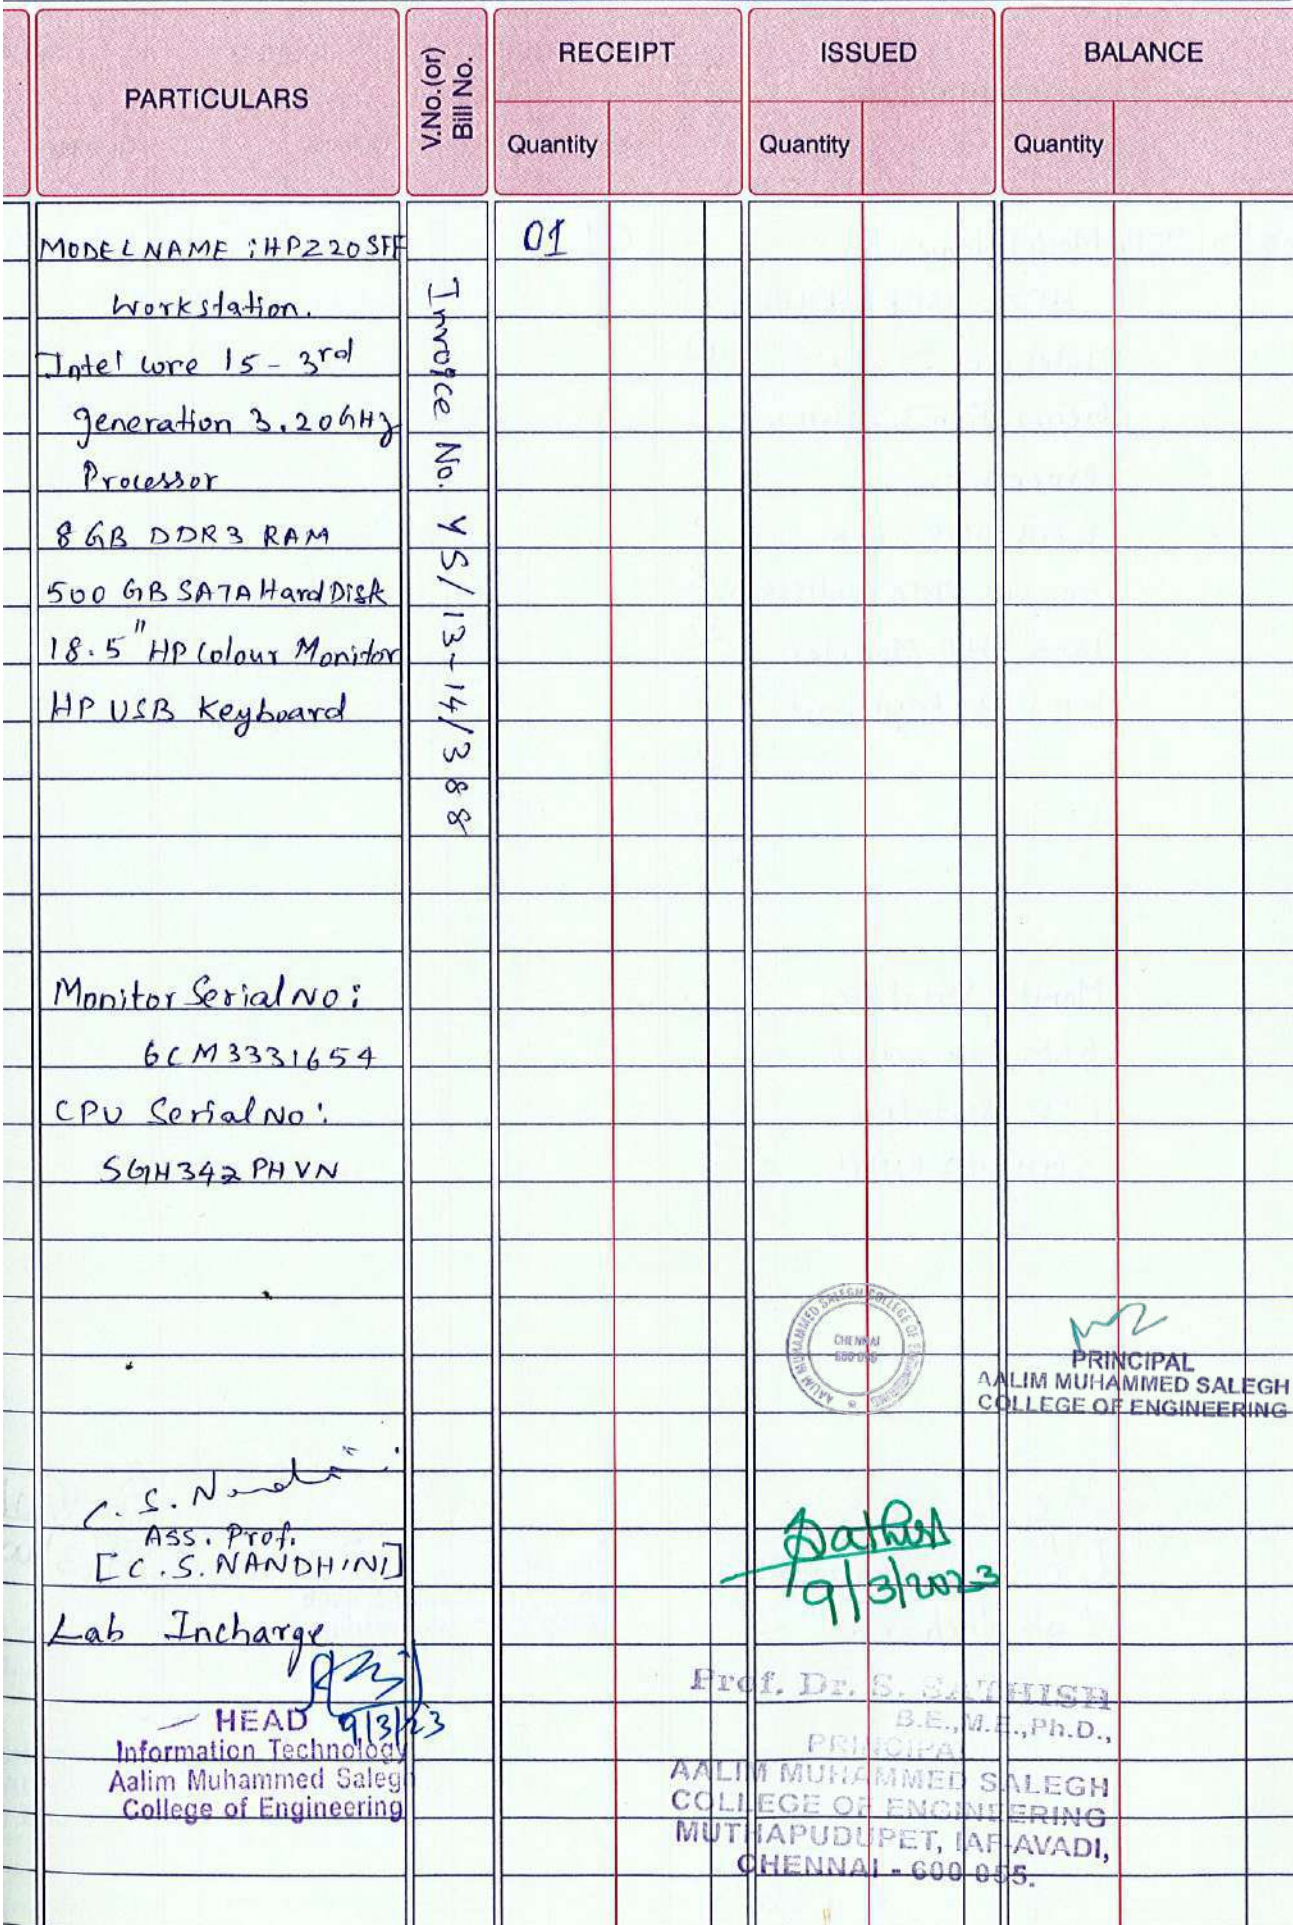 PARTICULARS
V.No.(or)
Bill No.
RECEIPT
ISSUED
BALANCE
Quantity
Quantity
Quantity
MODEL NAME : HP Z20 SFF
01
Workstation.
Intel core i5 - 3rd
generation 3.20GHz
Processor
8 GB DDR3 RAM
500 GB SATA Hard Disk
18.5" HP Colour Monitor
HP USB Keyboard
Invoice No. VS/13-14/388
Monitor Serial No:
6CM3331654
CPU Serial No:
SGH342PHVN
AALIM MUHAMMED SALEGH COLLEGE OF ENGINEERING
CHENNAI
600 055
PRINCIPAL
AALIM MUHAMMED SALEGH
COLLEGE OF ENGINEERING
C. S. Nandhini
Ass. Prof.
[C.S. NANDHINI]
Lab Incharge
9/3/23
HEAD
Information Technology
Aalim Muhammed Salegh
College of Engineering
Sathish
9/3/2023
Prof. Dr. S. SATHISH
B.E.,M.E.,Ph.D.,
PRINCIPAL
AALIM MUHAMMED SALEGH
COLLEGE OF ENGINEERING
MUTHAPUDUPET, IAF-AVADI,
CHENNAI - 600 055.